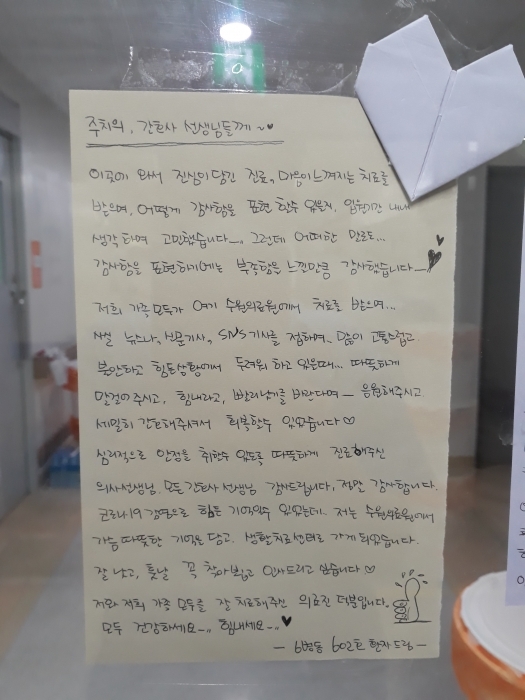 주치의, 간호사 선생님들께~♥
이곳에 와서 진심이 담긴 진료, 마음이 느껴지는 치료를
받으며, 어떻게 감사함을 표현 할수 있을지, 입원기간 내내
생각하며 고민했습니다_, 그런데 어떠한 말로도...
감사함을 표현하기에는 부족함을 느낀만큼 감사했습니다_♥
저희 가족모두가 여기 수원의료원에서 치료를 받으며...
뉴스나, 신문기사, SNS기사를 접하며, 많이 고통스럽고
불안하고 힘든상황에서 두려워 하고 있을때... 따뜻하게
말걸어주시고, 힘내라고, 빨리낫기를 바란다며_ 응원해주시고
세밀히 간호해주셔서 회복할수 있었습니다♡
심리적으로 안정을 취할수 있도록 따뜻하게 진료해주신
의사선생님, 모든간호사 선생님 감사드립니다, 정말 감사합니다.
코로나19 감염으로 힘든 기억일수 있었는데, 저는 수원의료원에서
가슴 따뜻한 기억을 담고, 생활치료센터로 가게 되었습니다.
잘 낫고, 훗날 꼭 찾아뵙고 인사드리고 싶습니다♡
저와 저희 가족 모두를 잘 치료해주신 의료진 덕분입니다.
모두 건강하세요_, 힘내세요_,♥
- 6병동 602호 환자 드림 -